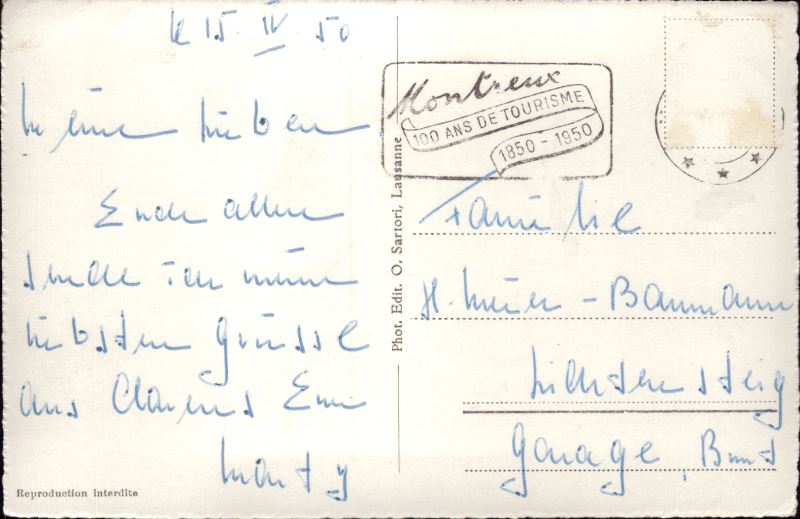 le 15 IV 50
Meine Lieben
Euch allen
sende ich meine
liebsten Grüsse
aus Clarens Eure
Marty
Reproduction interdite
Phot. Edit. O. Sartori, Lausanne
Montreux
100 ANS DE TOURISME
1850 - 1950
Familie
H. Meier - Baumann
Lichtensteig
Garage,